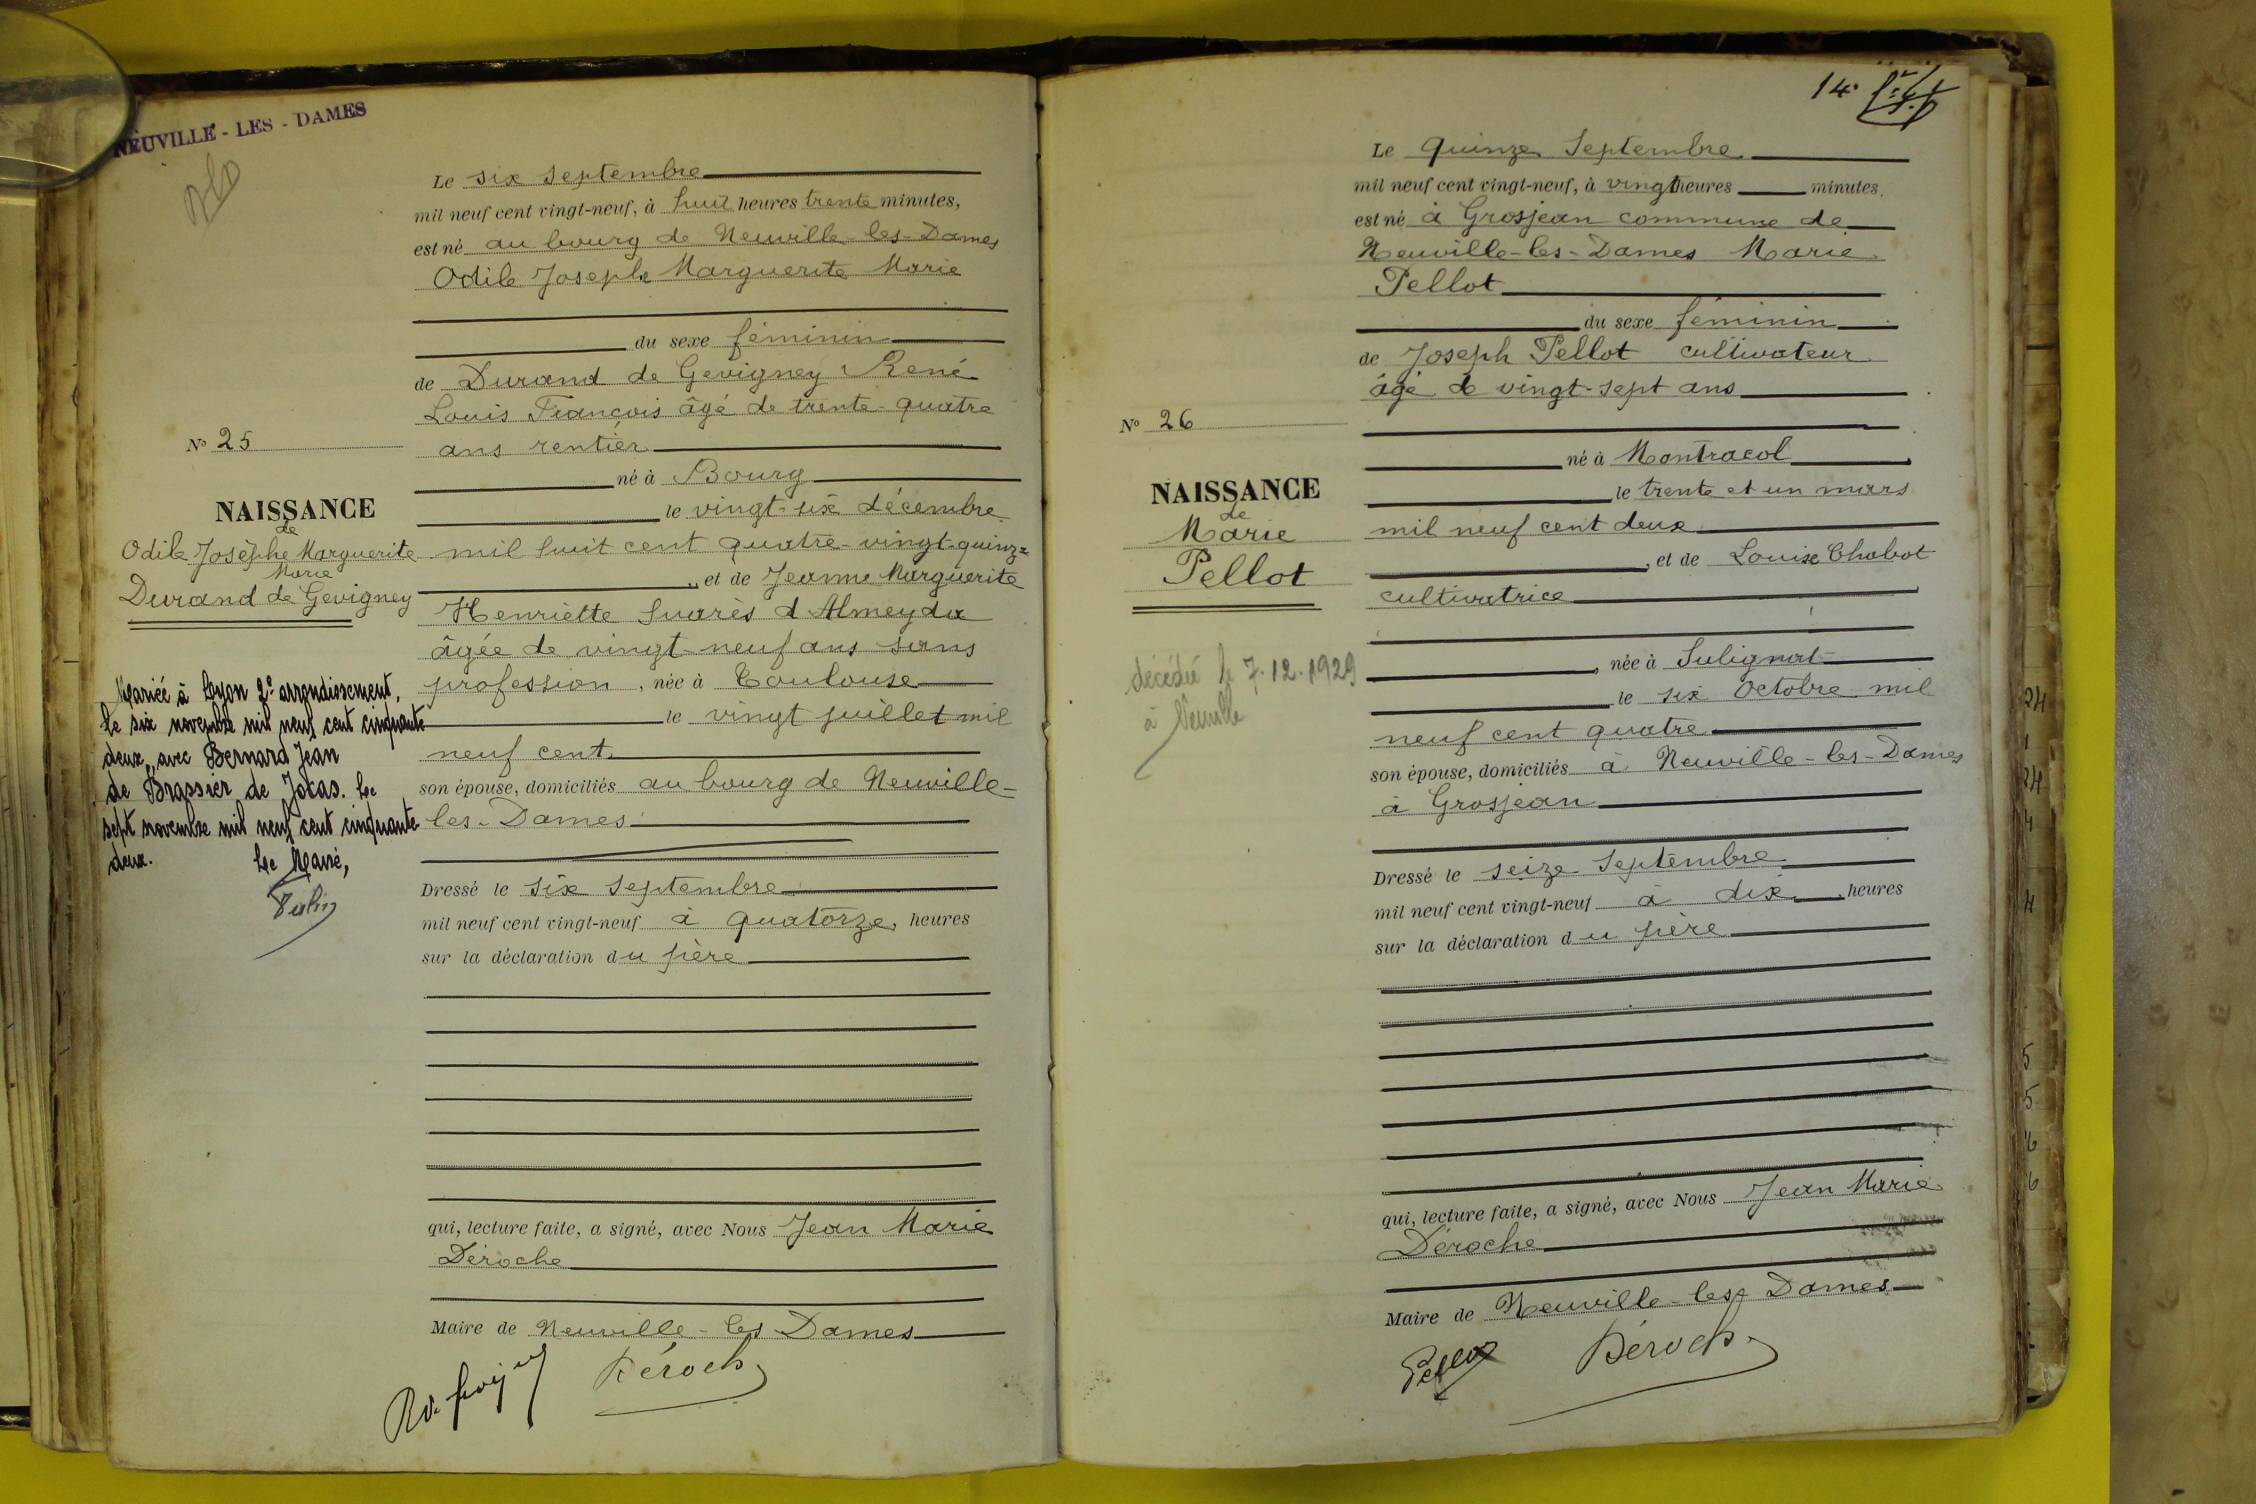 NEUVILLE - LES - DAMES
Le six septembre
mil neuf cent vingt-neuf, à huit heures trente minutes,
est né au bourg de Neuville-les-Dames
Odile Josephe Marguerite Marie
du sexe féminin
de Durand de Gevigney René
Louis François âgé de trente-quatre
ans rentier
né à Bourg
le vingt-six décembre
mil huit cent quatre-vingt-quinze
, et de Jeanne Marguerite
Henriette Suarès d'Almeyda
âgée de vingt-neuf ans sans
profession, née à Toulouse
le vingt juillet mil
neuf cent
son épouse, domiciliés au bourg de Neuville-
les-Dames
Dressé le six septembre
mil neuf cent vingt-neuf à quatorze, heures
sur la déclaration du père
qui, lecture faite, a signé, avec Nous Jean Marie
Déroche
Maire de Neuville-les Dames
Déroche
No 25
NAISSANCE
de
Odile Josèphe Marguerite
Marie
Durand de Gevigney
Mariée à Lyon 2e arrondissement,
le six novembre mil neuf cent cinquante
deux, avec Bernard Jean
de Brassier de Jocas. Le
sept novembre mil neuf cent cinquante
deux. Le Maire,
14
Le quinze septembre
mil neuf cent vingt-neuf, à vingt heures minutes,
est né à Grosjean commune de
Neuville-les-Dames Marie
Pellot
du sexe féminin
de Joseph Pellot cultivateur
âgé de vingt-sept ans
né à Montracol
le trente et un mars
mil neuf cent deux
, et de Louise Chabot
cultivatrice
, née à Sulignat
le six Octobre mil
neuf cent quatre
son épouse, domiciliés à Neuville-les-Dames
à Grosjean
Dressé le seize septembre
mil neuf cent vingt-neuf à dix, heures
sur la déclaration du père
qui, lecture faite, a signé, avec Nous Jean Marie
Déroche
Maire de Neuville-les-Dames
Pellot Déroche
No 26
NAISSANCE
de
Marie
Pellot
décédée le 7.12.1929
à Neuville
24
1
24
4
4
5
5
6
6